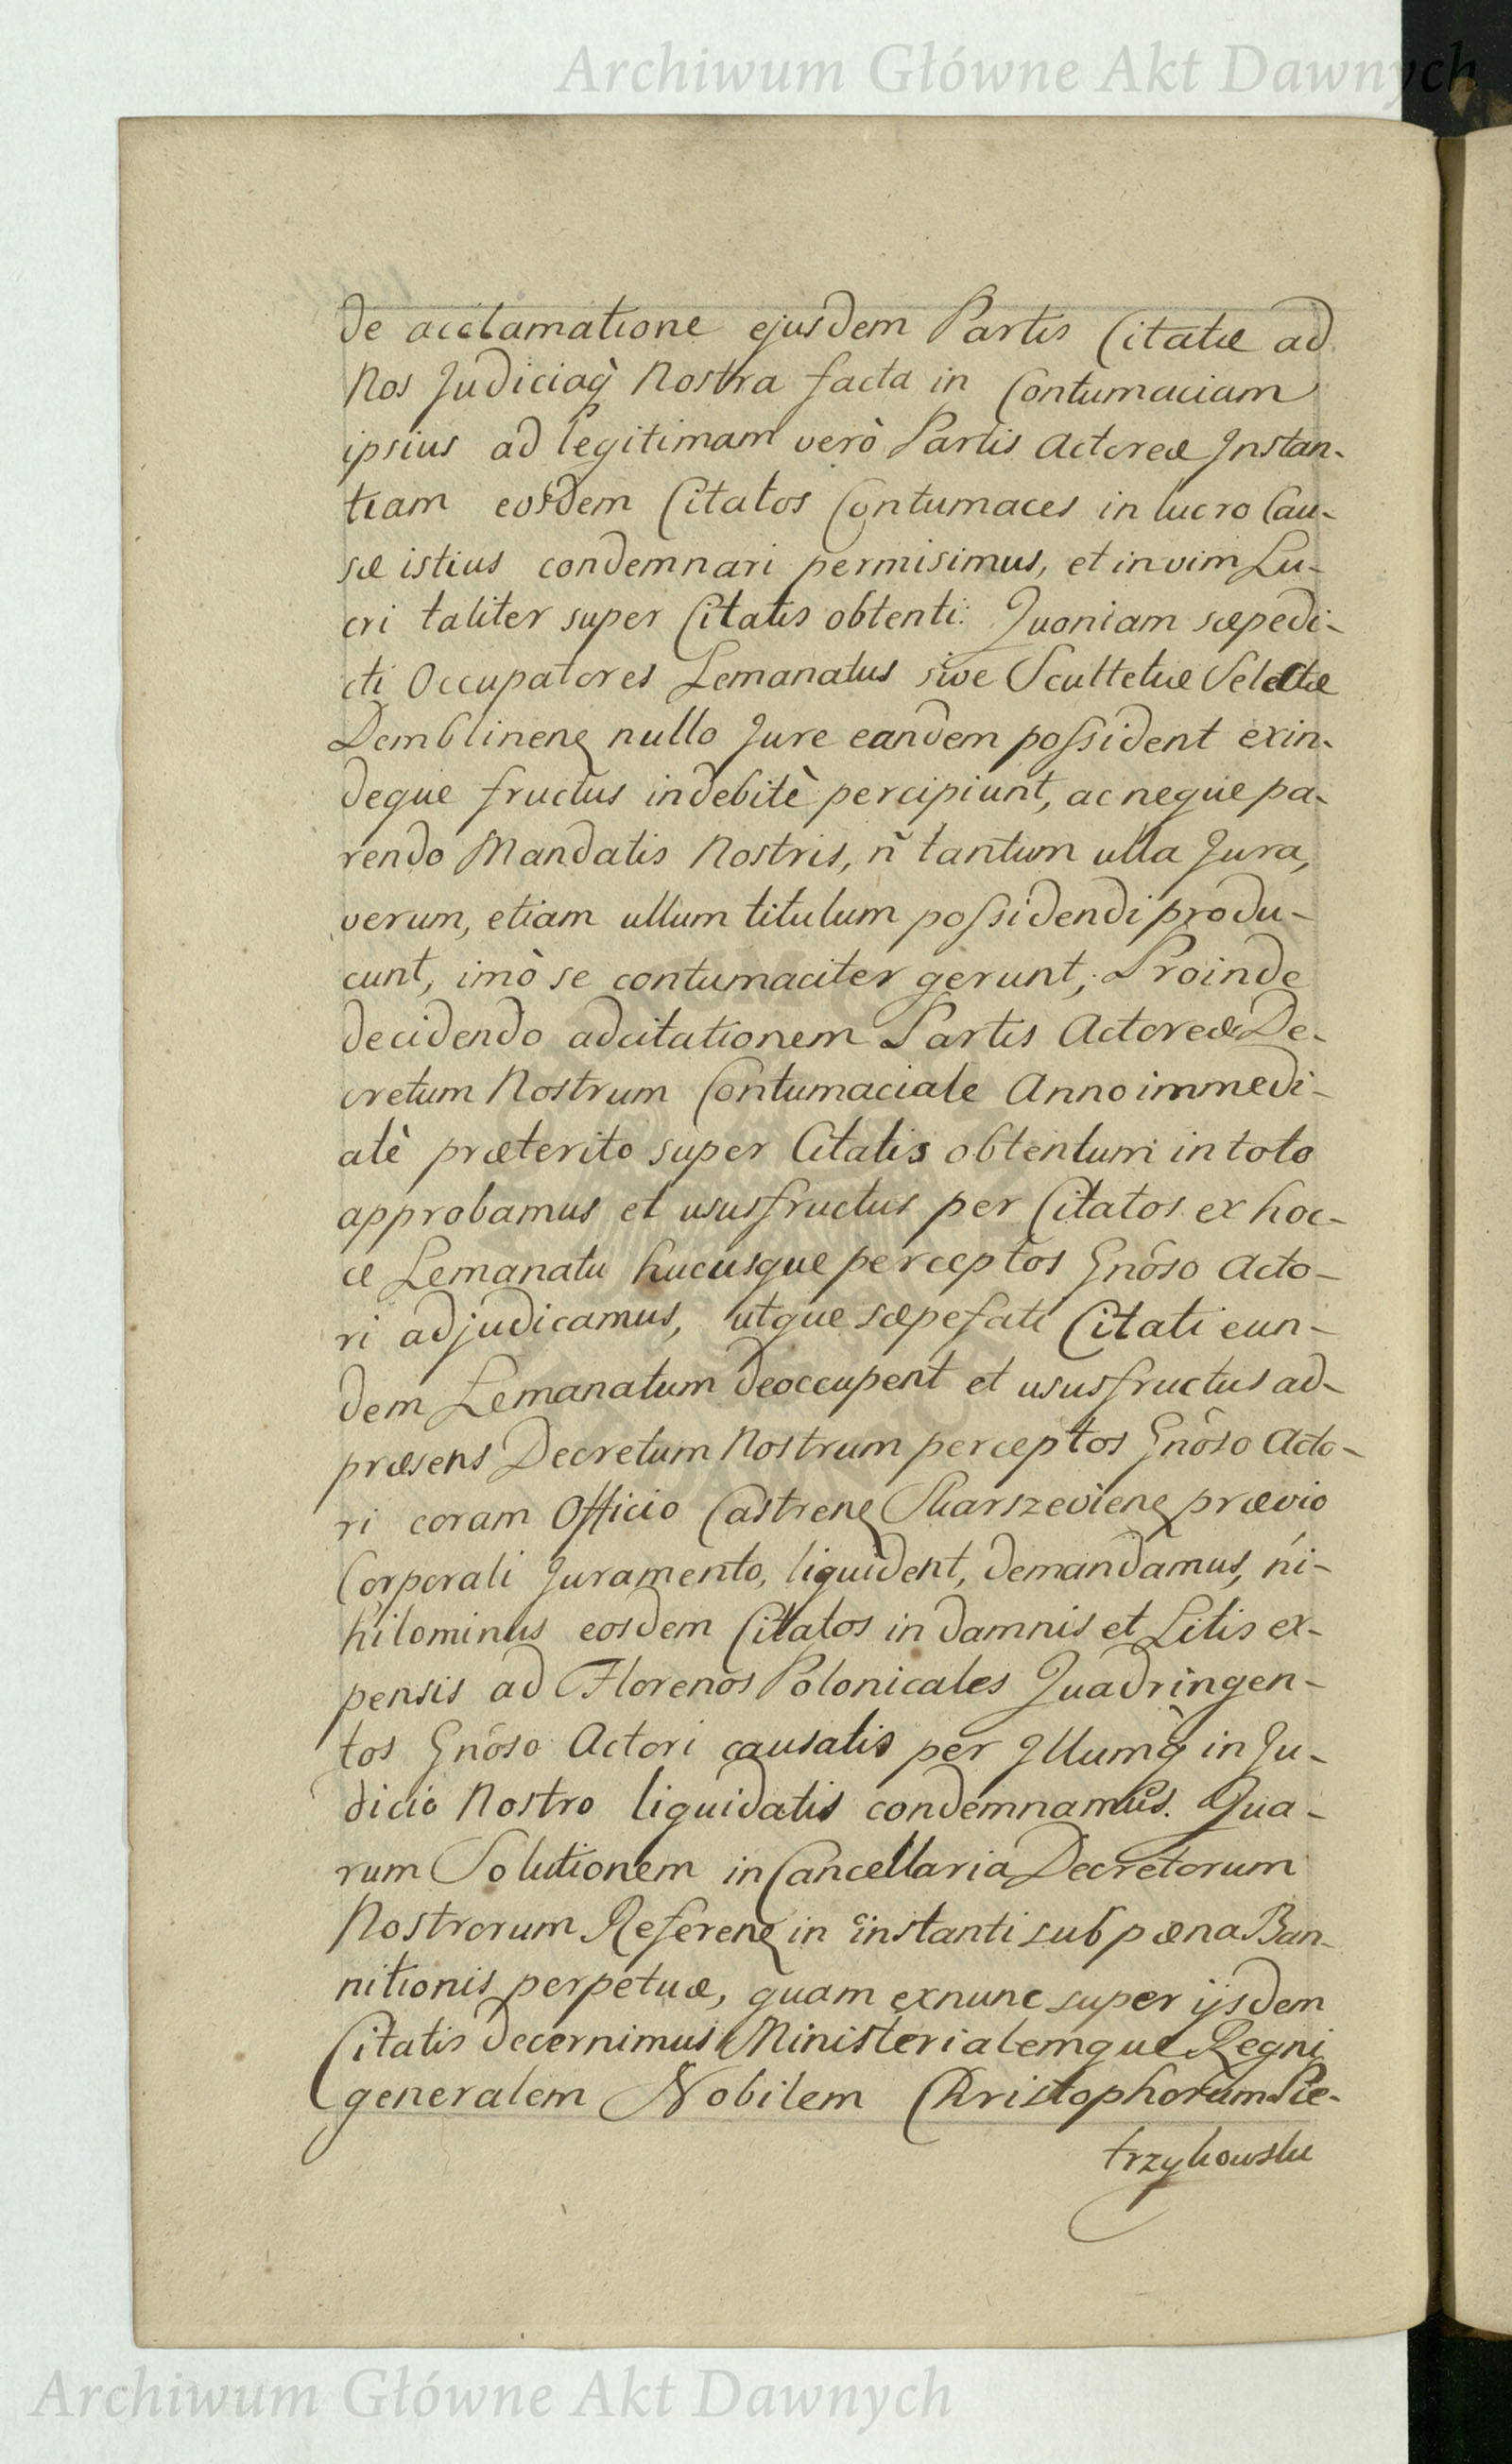 Archiwum Główne Akt Dawnych
de acclamatione ejusdem Partis Citatæ ad
Nos Judiciaq̀ Nostra facta in Contumaciam
ipsius ad legitimam verò Partis Actoreæ Instan-
tiam eosdem Citatos Contumaces in lucro Cau-
sæ istius condemnari permisimus, et in vim Lu-
cri taliter super Citatis obtenti: Quoniam sæpedi-
cti Occupatores Lemanatus sive Scultetiæ Selectæ
Demblineneȝ nullo Jure eandem possident exin-
deque fructus indebitè percipiunt, ac neque pa-
rendo Mandatis Nostris, ñ tantum ulla Jura,
verum, etiam ullum titulum possidendi produ-
cunt, imò se contumaciter gerunt; Proinde
decidendo adcitationem Partis Actoreæ De-
cretum Nostrum Contumaciale Anno immedi-
atè præterito super Citatis obtentum in toto
approbamus et ususfructus per Citatos ex hoc-
ce Lemanatu hucusque perceptos Gnôso Acto-
ri adjudicamus, utque sæpefati Citati eun-
dem Lemanatum deoccupent et ususfructus ad-
præsens Decretum Nostrum perceptos Gnôso Acto-
ri coram Officio Castreneȝ Skarszevieneȝ prævio
Corporali Juramento, liquident, demandamus, ni-
hilominus eosdem Citatos in damnis et Litis ex-
pensis ad Florenos Polonicales Quadringen-
tos Gnôso Actori causatis per Illumq̀ in Ju-
dicio Nostro liquidatis condemnamus. Qua-
rum Solutionem in Cancellaria Decretorum
Nostrorum Refereneȝ in instanti sub pœna Ban-
nitionis perpetuæ, quam exnunc super ijsdem
Citatis decernimus Ministerialemque Regni
generalem Nobilem Christophorum Pie-
trzykowski
Archiwum Główne Akt Dawnych